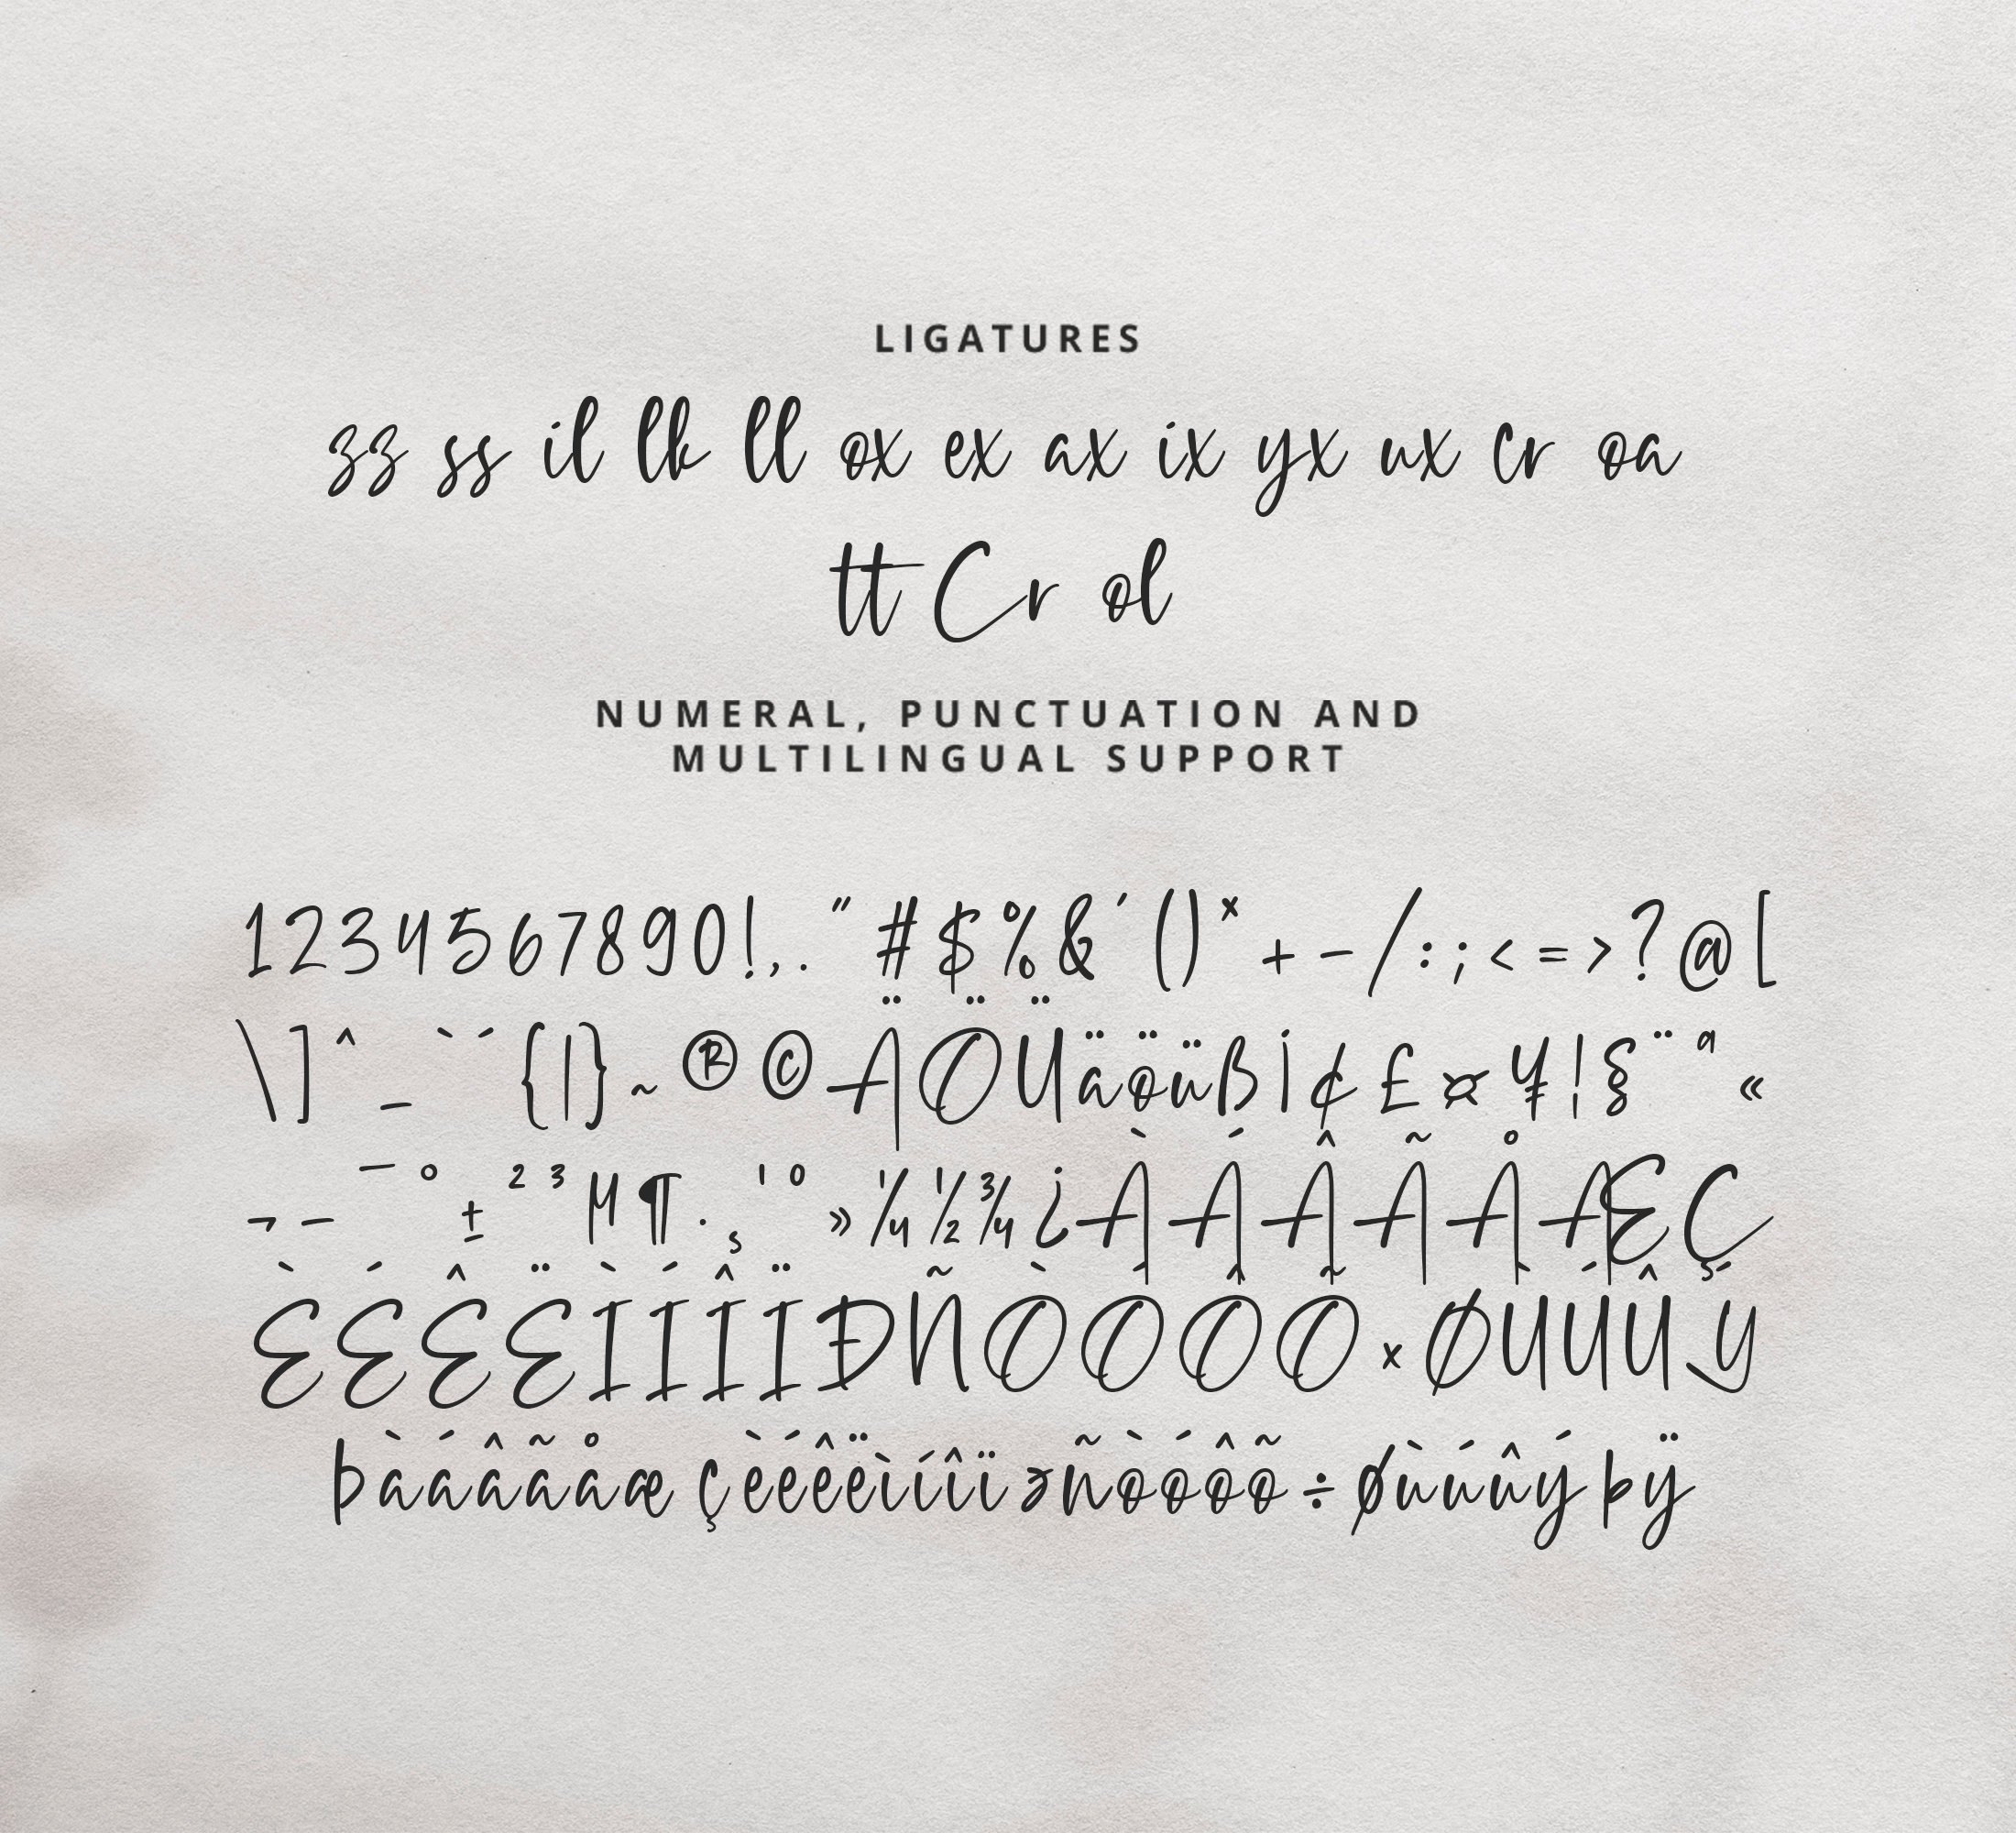 LIGATURES
zz ss il lk ll ox ex ax ix yx ux cr oa
tt Cr ol
NUMERAL, PUNCTUATION AND
MULTILINGUAL SUPPORT
1234567890!,. " # $ % & ' ( ) * + - / : ; < = > ? @ [
\ ] ^ _ ` ´ { | } ~ ® © Ä Ö Ü ä ö ü ß ¡ ¢ £ ¤ ¥ ¦ § ¨ ª «
¬ - ¯ ° ± ² ³ µ ¶ · ¸ ¹ º » ¼ ½ ¾ ¿ À Á Â Ã Å Æ Ç
È É Ê Ë Ì Í Î Ï Ð Ñ Ò Ó Ô Õ × Ø Ù Ú Û Ý
Þ à á â ã å æ ç è é ê ë ì í î ï ð ñ ò ó ô õ ÷ ø ù ú û ý þ ÿ